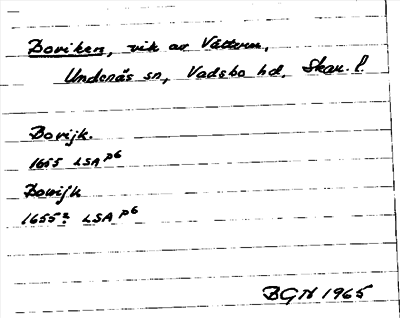 Boviken, vik av Vättern,
Undenäs sn, Vadsbo hd, Skar. l.
Bovijk.
1655 LSA P6
Bowijk
1655? LSA P6
BGN 1965